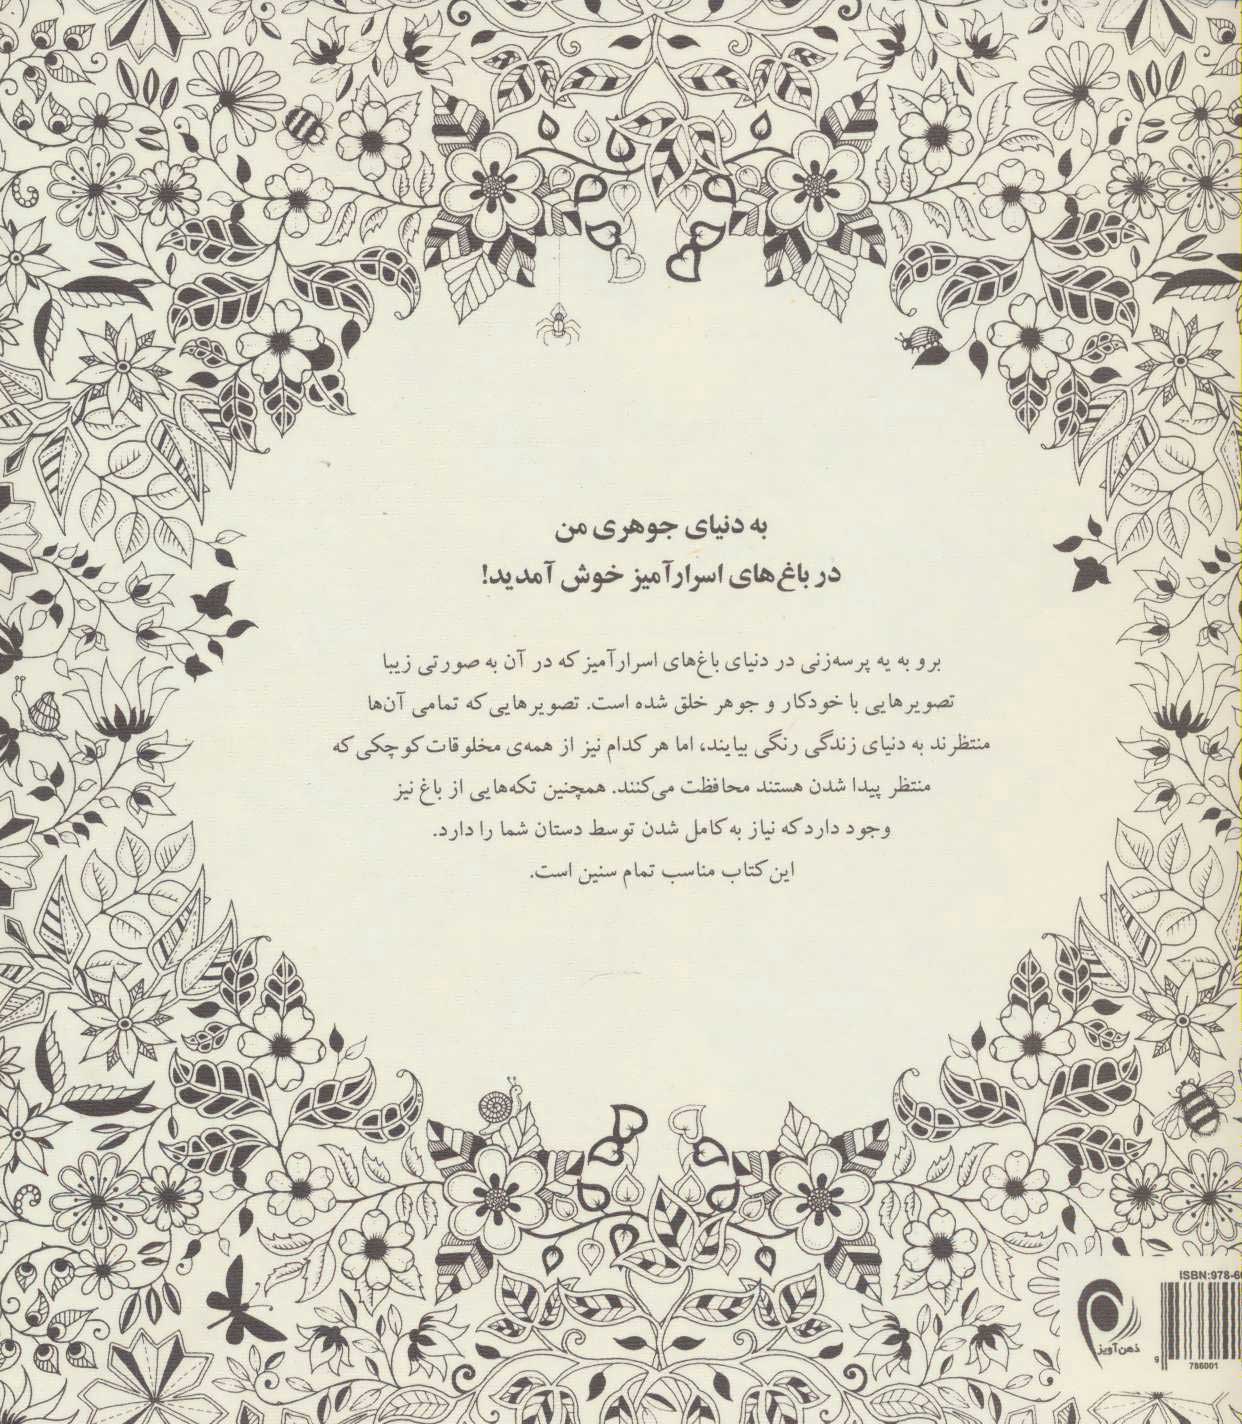 به دنیای جوهری من
در باغ‌های اسرارآمیز خوش آمدید!
برو به یه پرسه‌زنی در دنیای باغ‌های اسرارآمیز که در آن به صورتی زیبا
تصویرهایی با خودکار و جوهر خلق شده است. تصویرهایی که تمامی آن‌ها
منتظرند به دنیای زندگی رنگی بیایند، اما هر کدام نیز از همه‌ی مخلوقات کوچکی که
منتظر پیدا شدن هستند محافظت می‌کنند. همچنین تکه‌هایی از باغ نیز
وجود دارد که نیاز به کامل شدن توسط دستان شما را دارد.
این کتاب مناسب تمام سنین است.
ISBN:978-6
ذهن‌آویز
9 786001